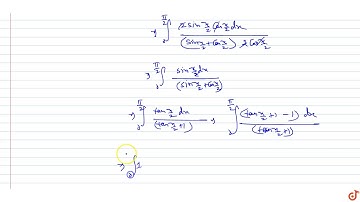 ⇒ ∫₀^{π/2} (2 sin x/2 cos x/2 dx) / ((sin x/2 + cos x/2) 2 cos x/2)
⇒ ∫₀^{π/2} (sin x/2 dx) / (sin x/2 + cos x/2)
⇒ ∫₀^{π/2} (tan x/2 dx) / (tan x/2 + 1) ⇒ ∫₀^{π/2} ((tan x/2 + 1 - 1) dx) / (tan x/2 + 1)
⇒ ∫₀ 1